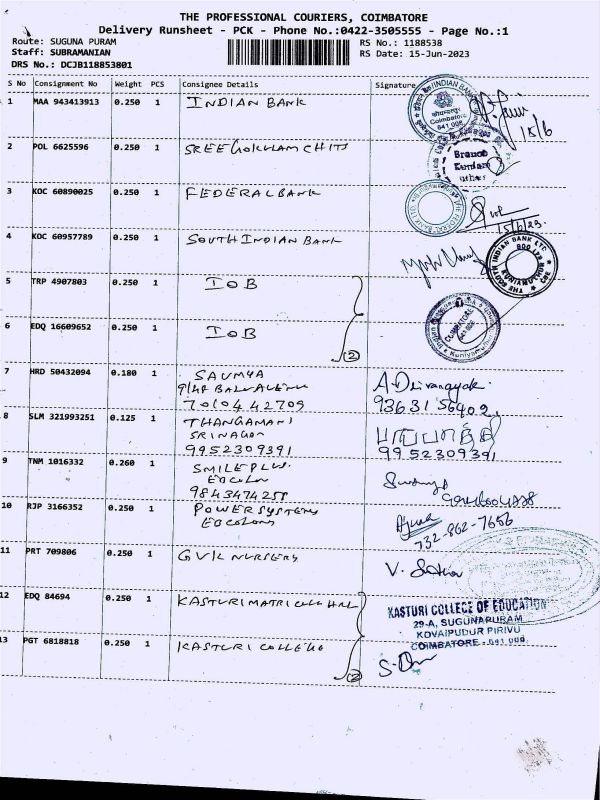 THE PROFESSIONAL COURIERS, COIMBATORE
Delivery Runsheet - PCK - Phone No.:0422-3505555 - Page No.:1
Route: SUGUNA PURAM RS No.: 1188538
Staff: SUBRAMANIAN RS Date: 15-Jun-2023
DRS No.: DCJB118853801
S No Consignment No Weight PCS Consignee Details Signature
1 MAA 943413913 0.250 1 INDIAN BANK
15/6
2 POL 6625596 0.250 1 SREE GOKULAM CHITS
Branch
3 KOC 60890025 0.250 1 FEDERAL BANK
15/6/23
4 KOC 60957789 0.250 1 SOUTH INDIAN BANK
THE SOUTH INDIAN BANK LTD. KUNIYAMUTHUR
5 TRP 4907803 0.250 1 IOB
COIMBATORE
6 EDQ 16609652 0.250 1 IOB
(2)
7 HRD 50432094 0.180 1 SAUMYA
7010442709 93631 56902
8 SLM 321993251 0.125 1 THANGAMANI
SRINAGAR
9952309391 9952309391
9 TNM 1016332 0.260 1 SMILE PLUS
EB COLON
9843474258
10 RJP 3166352 0.250 1 POWER SYSTEMS
EB COLONY 732-862-7656
11 PRT 709806 0.250 1 GVK NURSERY
V.
12 EDQ 84694 0.250 1 KASTURI MATRIC
KASTURI COLLEGE OF EDUCATION
29-A, SUGUNAPURAM
KOVAIPUDUR PIRIVU
COIMBATORE - 641 008
13 PGT 6818818 0.250 1 KASTURI COLLEGE
(2)